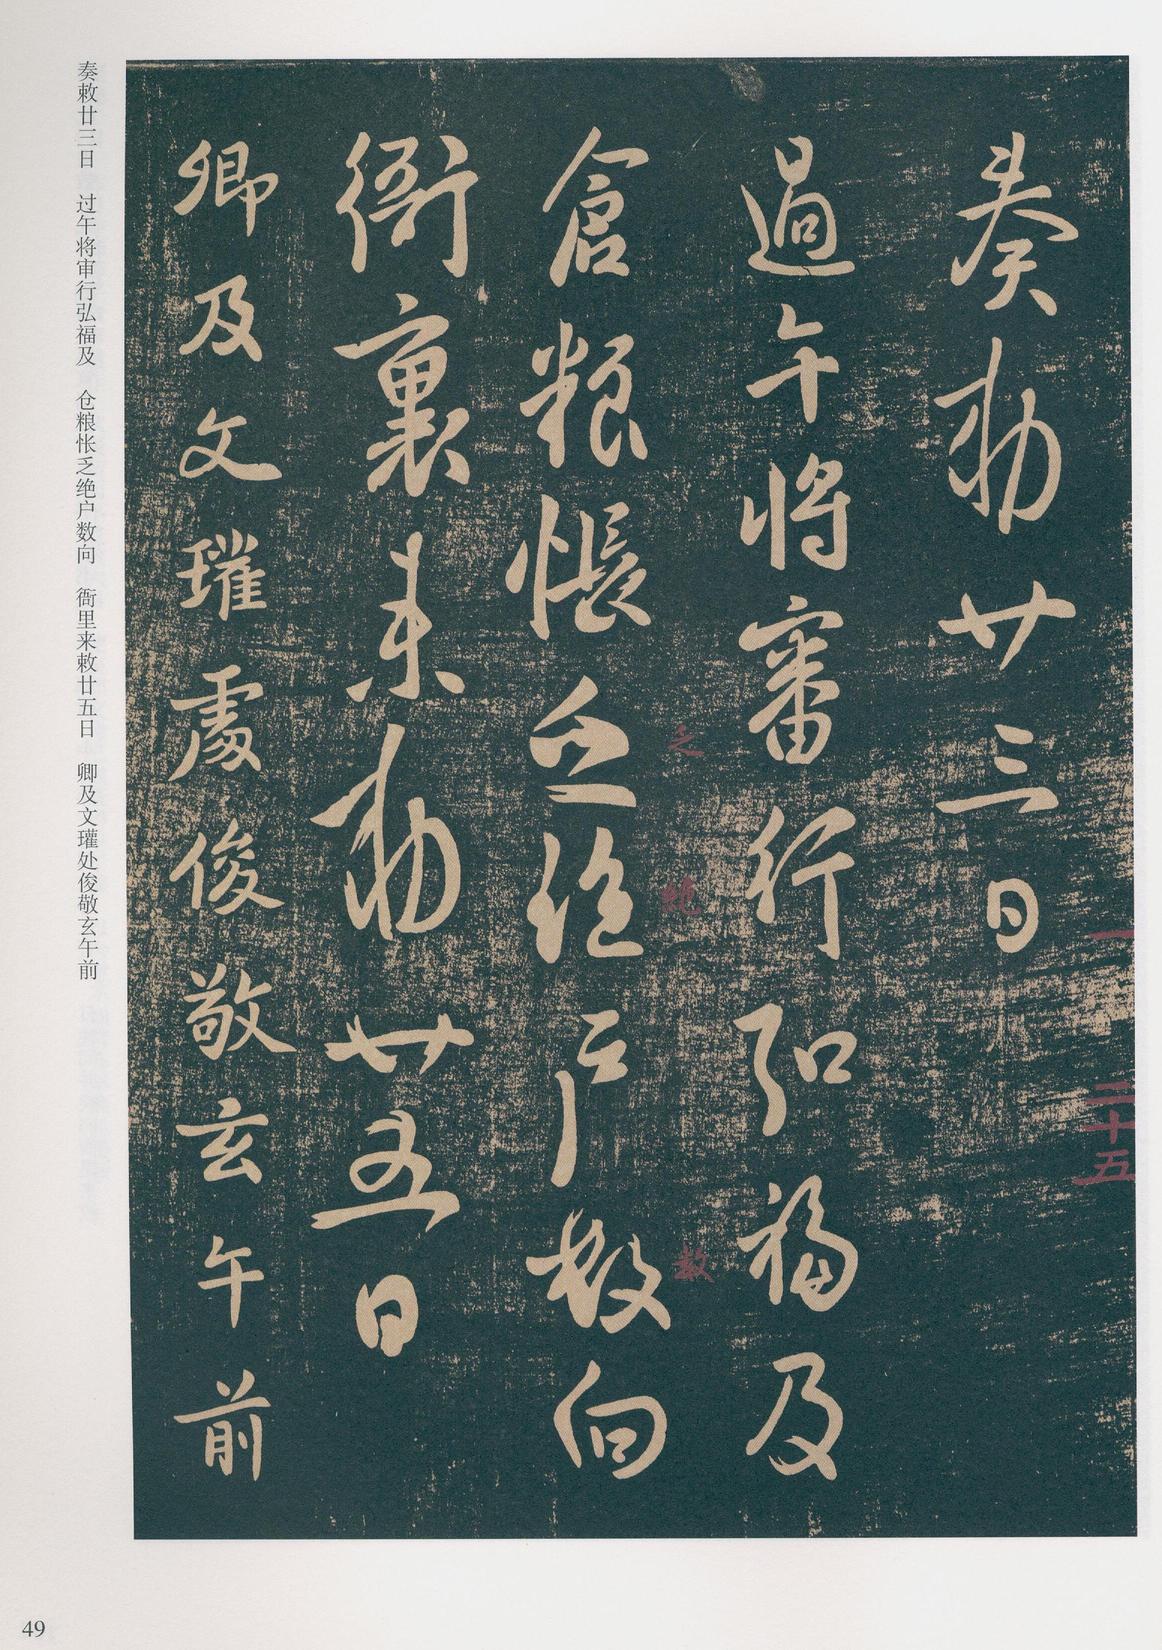 奏敕廿三日
過午將審行弘福及
倉粮悵乏絕户數向
衙裏来敕廿五日
卿及文瓘處俊敬玄午前
乏
絕
數
一
二十五
奏敕廿三日　过午将审行弘福及　仓粮怅乏绝户数向　衙里来敕廿五日　卿及文瓘处俊敬玄午前
49